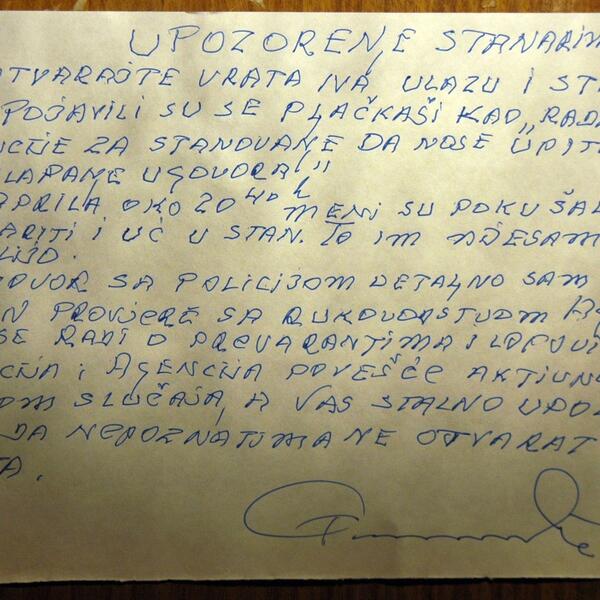 UPOZORENJE STANARIM
OTVARAJTE VRATA NA ULAZU I ST
POJAVILI SU SE PLJAČKAŠI KAO „RADN
NCIJE ZA STANOVANJE DA NOSE UPIT
LAPANJE UGOVORA"
APRILA OKO 20 40 h MENI SU POKUŠAL
ARITI I UĆ U STAN. TO IM NIJESAM
LIJO.
OVOR SA POLICIJOM DETALJNO SAM
N PROVJERE SA RUKOVODSTVOM AG
SE RADI O PREVARANTIMA I LOPOVI
CIJA I AGENCIJA POVEŠĆE AKTIVN
OM SLUČAJA, A VAS STALNO UPOZ
DA NEPOZNATIMA NE OTVARAT
TA.